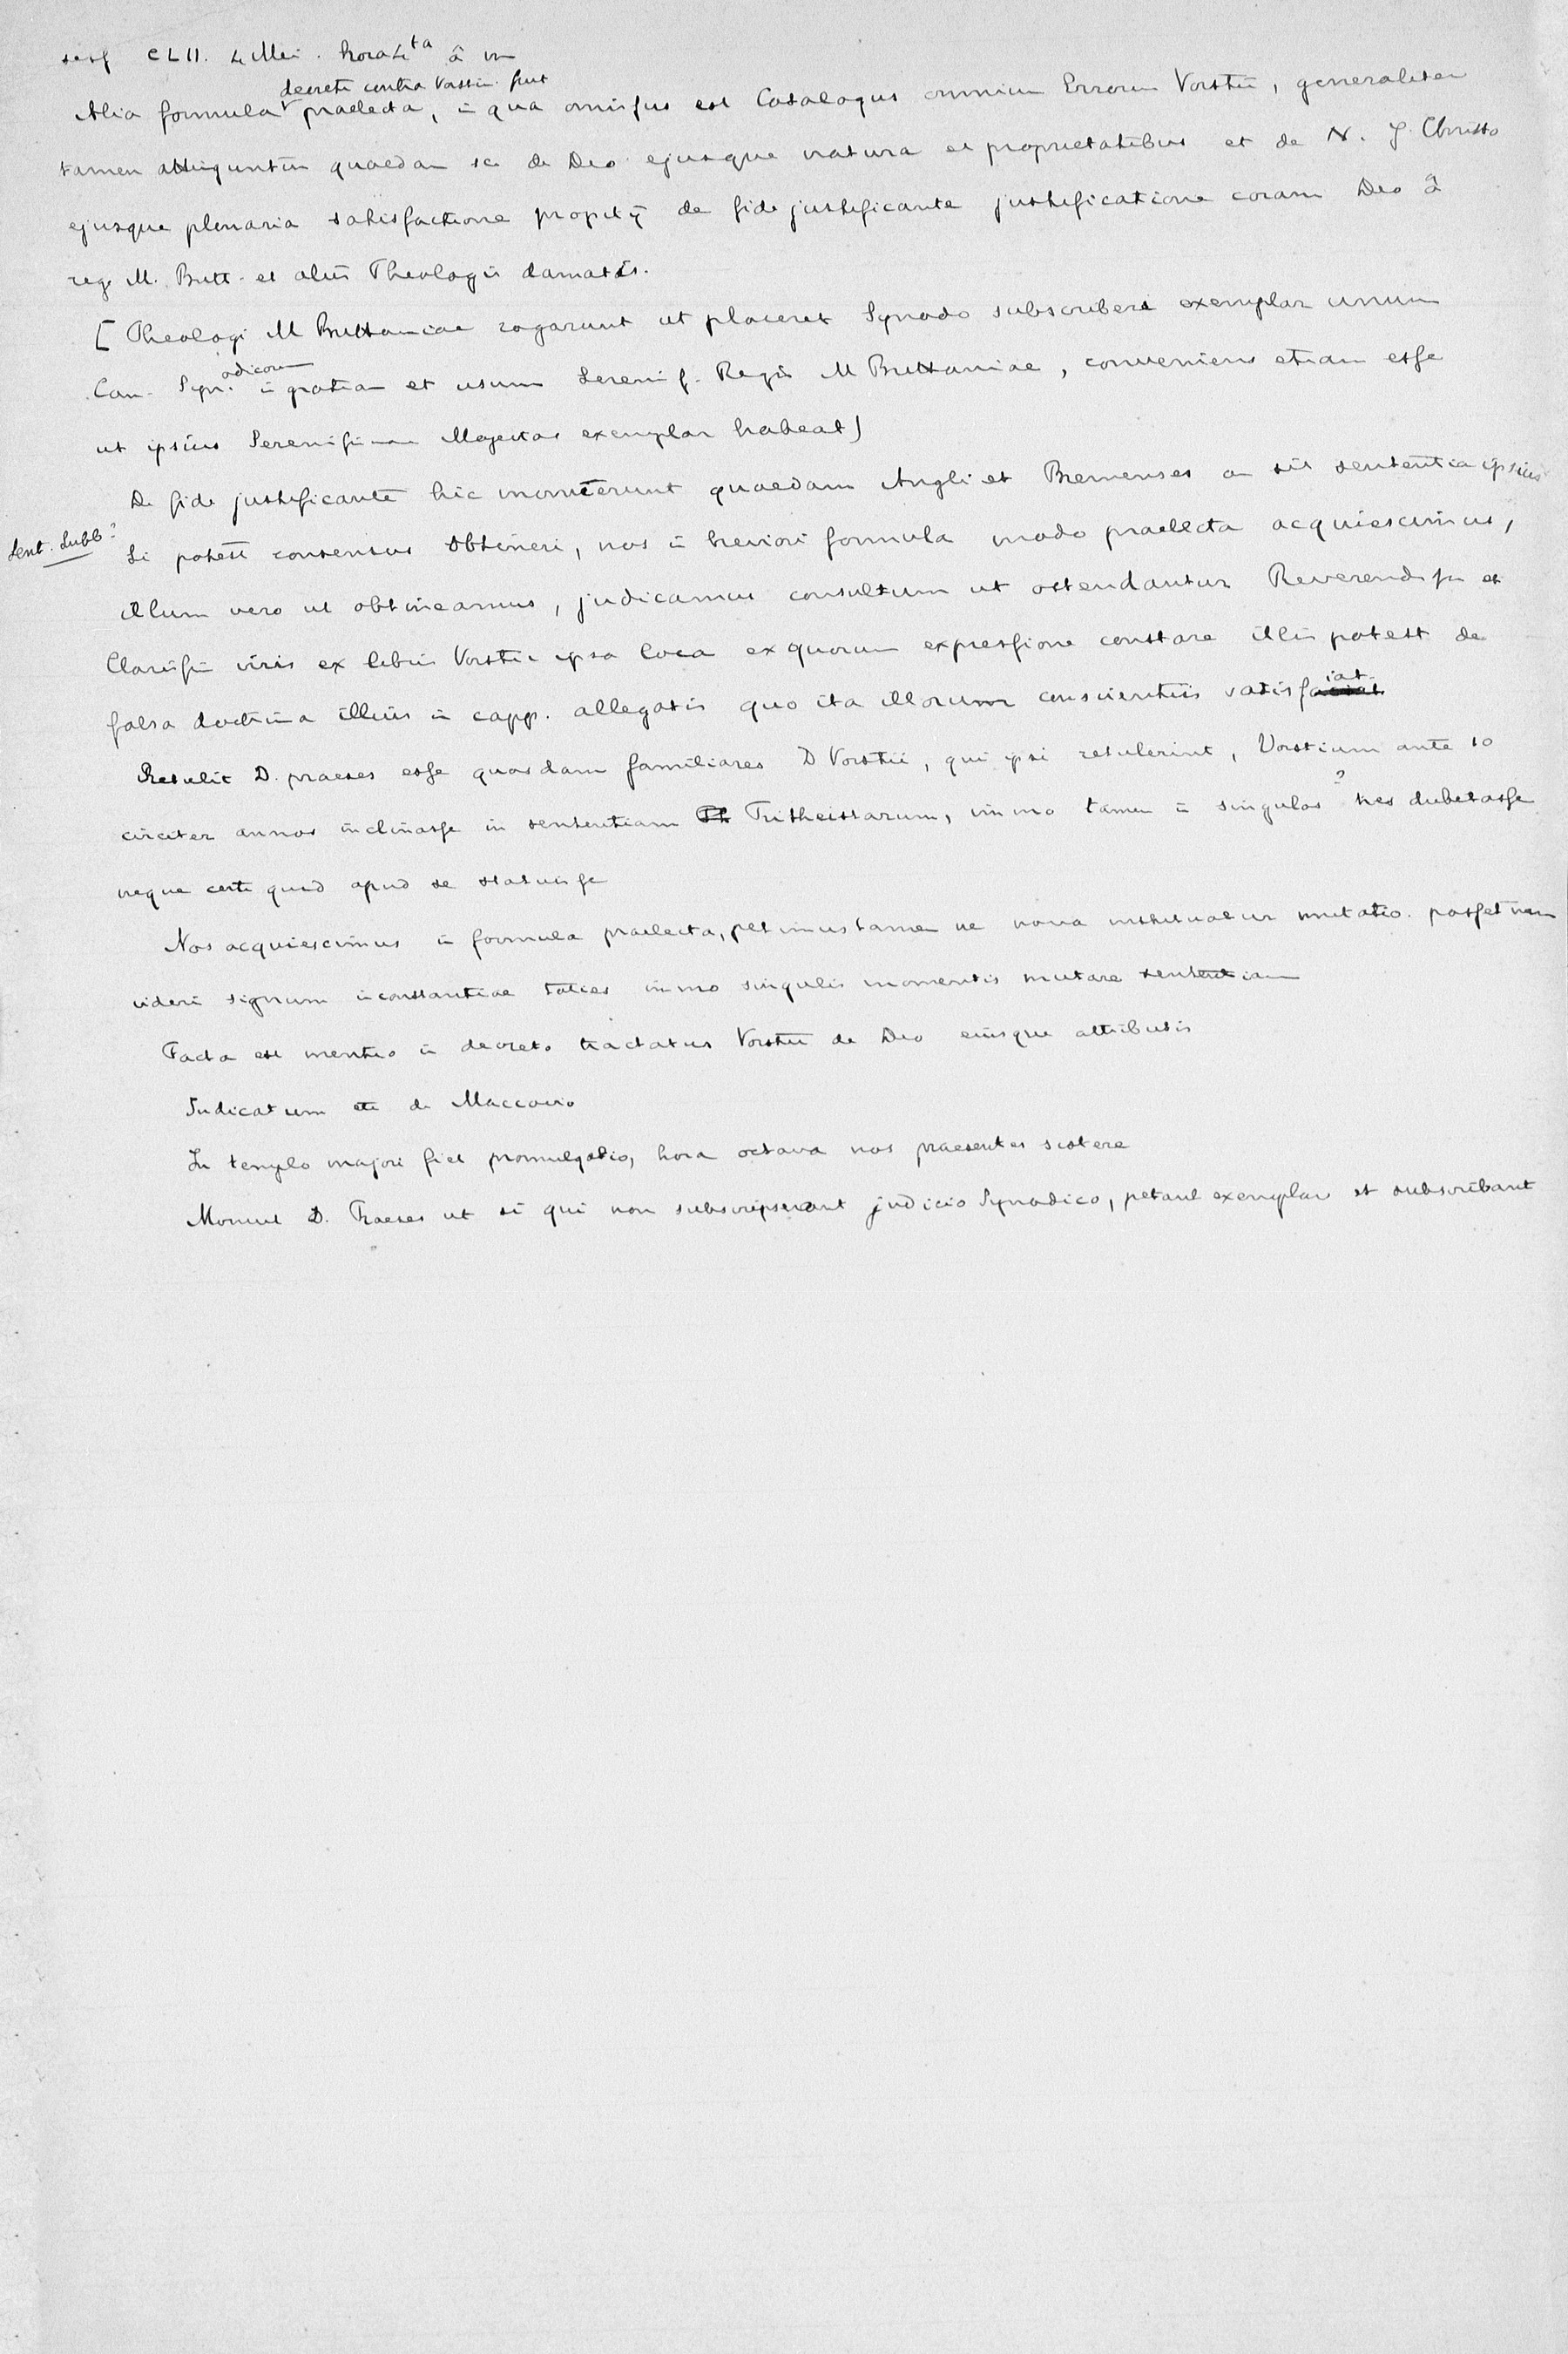 sess CLII. 4 Mei. hora 4ta â m
decreti contra Vorstiu fuit
Alia formula praelecta, ī qua omissus est Catalogus omnium Errorum Vorstii, generaliter
tamen attinguntur quaedam sc. de Deo ejusque natura et proprietatibus et de N. J. Christo
ejusque plenaria satisfactione de fide justificante justificatione coram Deo â
reg. M. Britt. et aliis Theologis damatis.
[Theologi M Brittanniae rogarunt ut placeret Synodo subscribere exemplar unum
odicorum
Can. Syn. ī gratiam et usum Serenis. Regis M Brittanniae, conveniens etiam esse
ut ipsius Serenissima Majestas exemplar habeat)
De fide justificante hic monuerunt quaedam Angli et Bremenses an sit sententia ipsius
Sent. Lubb?
Si potest consensus obtineri, nos ī breviori formula modo praelecta acquiescimus,
illum vero ut obtineamus, judicamus consultum ut ostendantur Reverendiss et
Clariss viris ex libris Vorstii ipsa loca ex quorum expressione constare illis potest de
falsa doctrina illius ī capp. allegatis quo ita illorum conscientiis satisfa
iat
Retulit D. praeses esse quosdam familiares D Vorstii, qui ipsi retulerint, Vorstium ante 10
circiter annos inclinasse in sententiam Tritheistarum, immo tamen ī singulas ? tres dubitasse
neque certi quid apud se statuisse
Nos acquiescimus ī formula praelecta, petimus tamen ne nova instituatur mutatio. posset nam
videri signum inconstantiae toties immo singulis momentis mutare sententiam
Facta est mentio ī decreto tractatus Vorstii de Deo eiusque attributis
Judicatum ete de Maccovio
In templo majori fiet promulgatio, hora octava nos praesentes sistere
Monuit D. Praeses ut si qui non subscripserant judicio Synodico, petant exemplar et subscribant